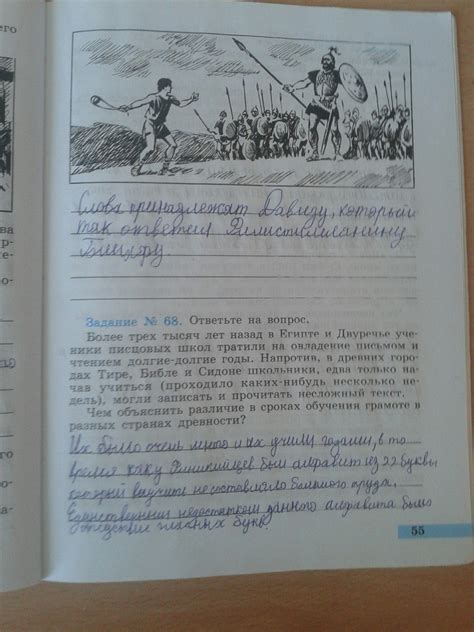 его
Слова принадлежат Давиду, который
так ответил Филистимлянину
Задание № 68. Ответьте на вопрос.
Более трех тысяч лет назад в Египте и Двуречье уче-
ники писцовых школ тратили на овладение письмом и
чтением долгие-долгие годы. Напротив, в древних горо-
дах Тире, Библе и Сидоне школьники, едва только на-
чав учиться (проходило каких-нибудь несколько не-
дель), могли записать и прочитать несложный текст.
Чем объяснить различие в сроках обучения грамоте в
разных странах древности?
Их было очень много и их учили годами, в то
время как у Финикийцев был алфавит из 22 буквы,
который выучить не составляло большого труда.
Единственным недостатком данного алфавита было
отсутствие гласных букв.
55